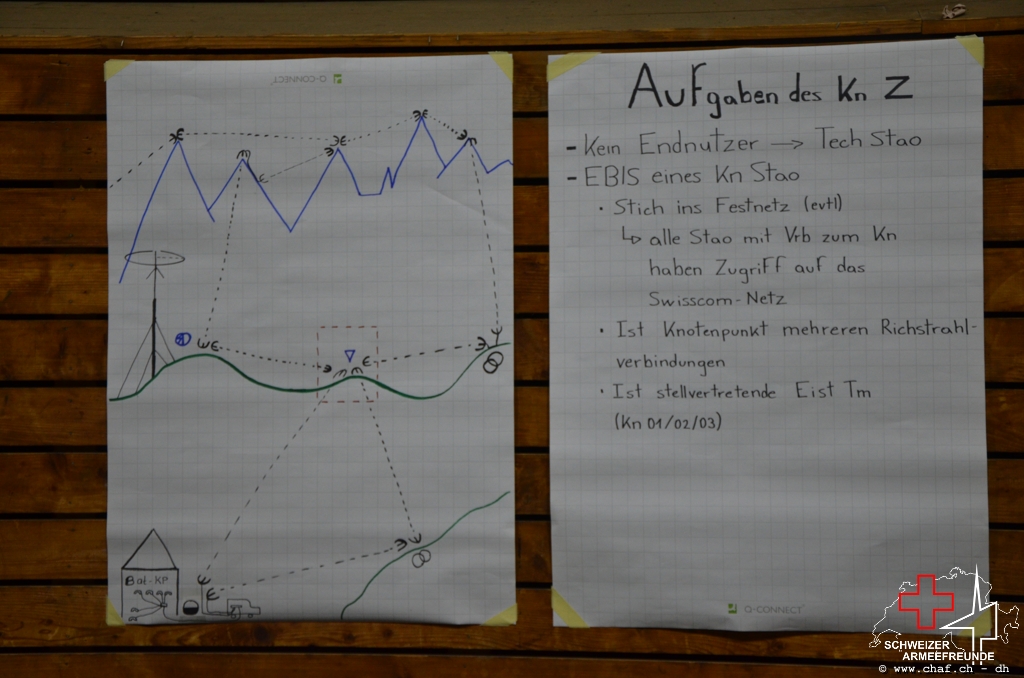 Q-CONNECT
Bat-KP
Aufgaben des Kn Z
- Kein Endnutzer → Tech Stao
- EBIS eines Kn Stao
· Stich ins Festnetz (evtl)
↳ alle Stao mit Vrb zum Kn
haben Zugriff auf das
Swisscom-Netz
· Ist Knotenpunkt mehreren Richstrahl-
verbindungen
· Ist stellvertretende Eist Tm
(Kn 01/02/03)
Q-CONNECT
SCHWEIZER
ARMEEFREUNDE
© www.chaf.ch - dh